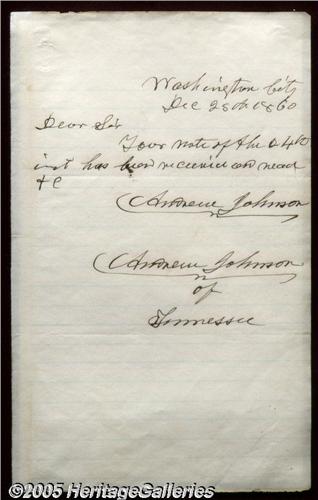 Washington City
Dec 28th 1860
Dear Sir
Your note of the 24th
inst has been received and read
&C
Andrew Johnson
Andrew Johnson
of
Tennessee
©2005 HeritageGalleries